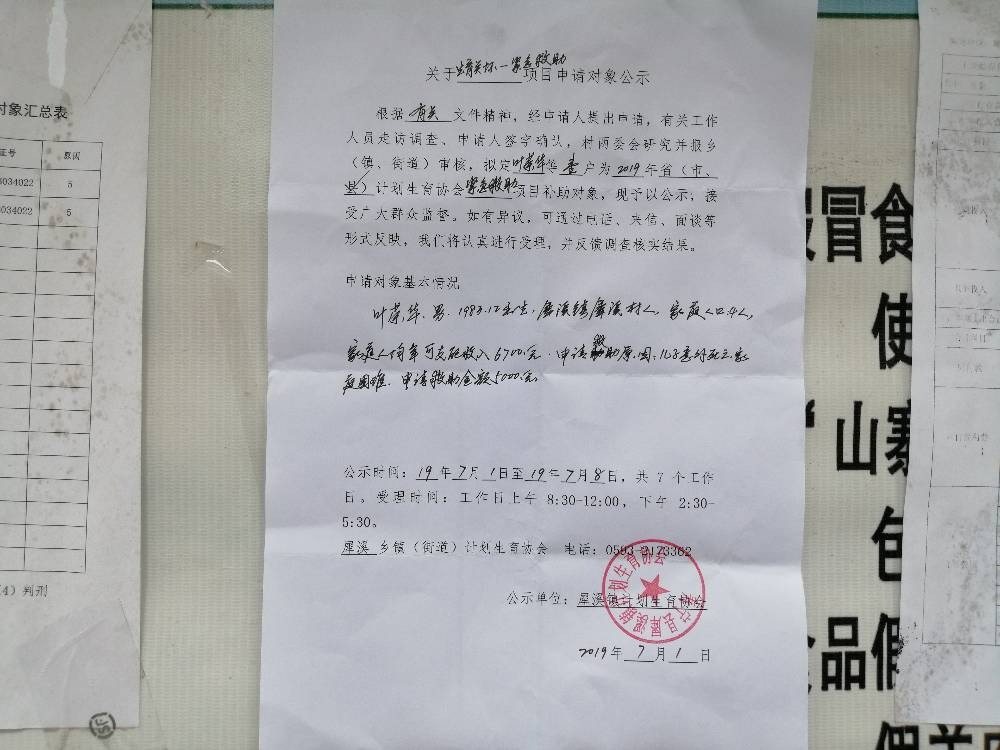 关于生育关怀—紧急救助项目申请对象公示
根据 有关 文件精神，经申请人提出申请，有关工作
人员走访调查、申请人签字确认，村两委会研究并报乡
（镇、街道）审核，拟定叶荣华等 壹 户为 2019 年省（市、
县）计划生育协会紧急救助项目补助对象，现予以公示；接
受广大群众监督。如有异议，可通过电话、来信、面谈等
形式反映，我们将认真进行受理，并反馈调查核实结果。
申请对象基本情况
叶荣华、男、1983.12出生，犀溪镇犀溪村人，家庭人口4人，
家庭人均年可支配收入6700元．申请救助原因：
庭困难．申请救助金额5000元
公示时间：19年7月1日至19年7月8日，共 7 个工作
日。受理时间：工作日上午 8:30-12:00，下午 2:30-
5:30。
犀溪 乡镇（街道）计划生育协会 电话：0593-2173362
公示单位：犀溪镇计划生育协会
寿宁县犀溪镇计划生育协会
2019年 7 月 1 日
对象汇总表
证号 原因
034022 5
034022 5
4）判刑
冒食
使
“山寨
包
食品假